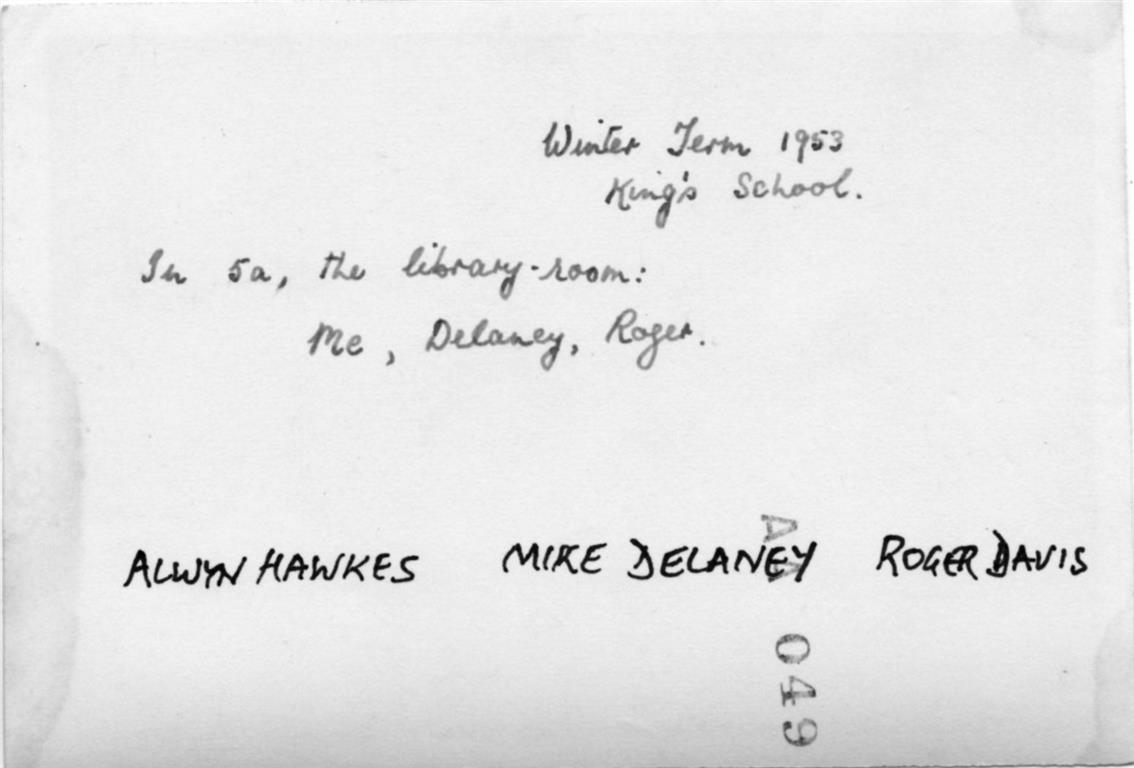 Winter Term 1953
King's School.
In 5a, the library-room:
Me, Delaney, Roger.
ALWYN HAWKES MIKE DELANEY ROGER DAVIS
049